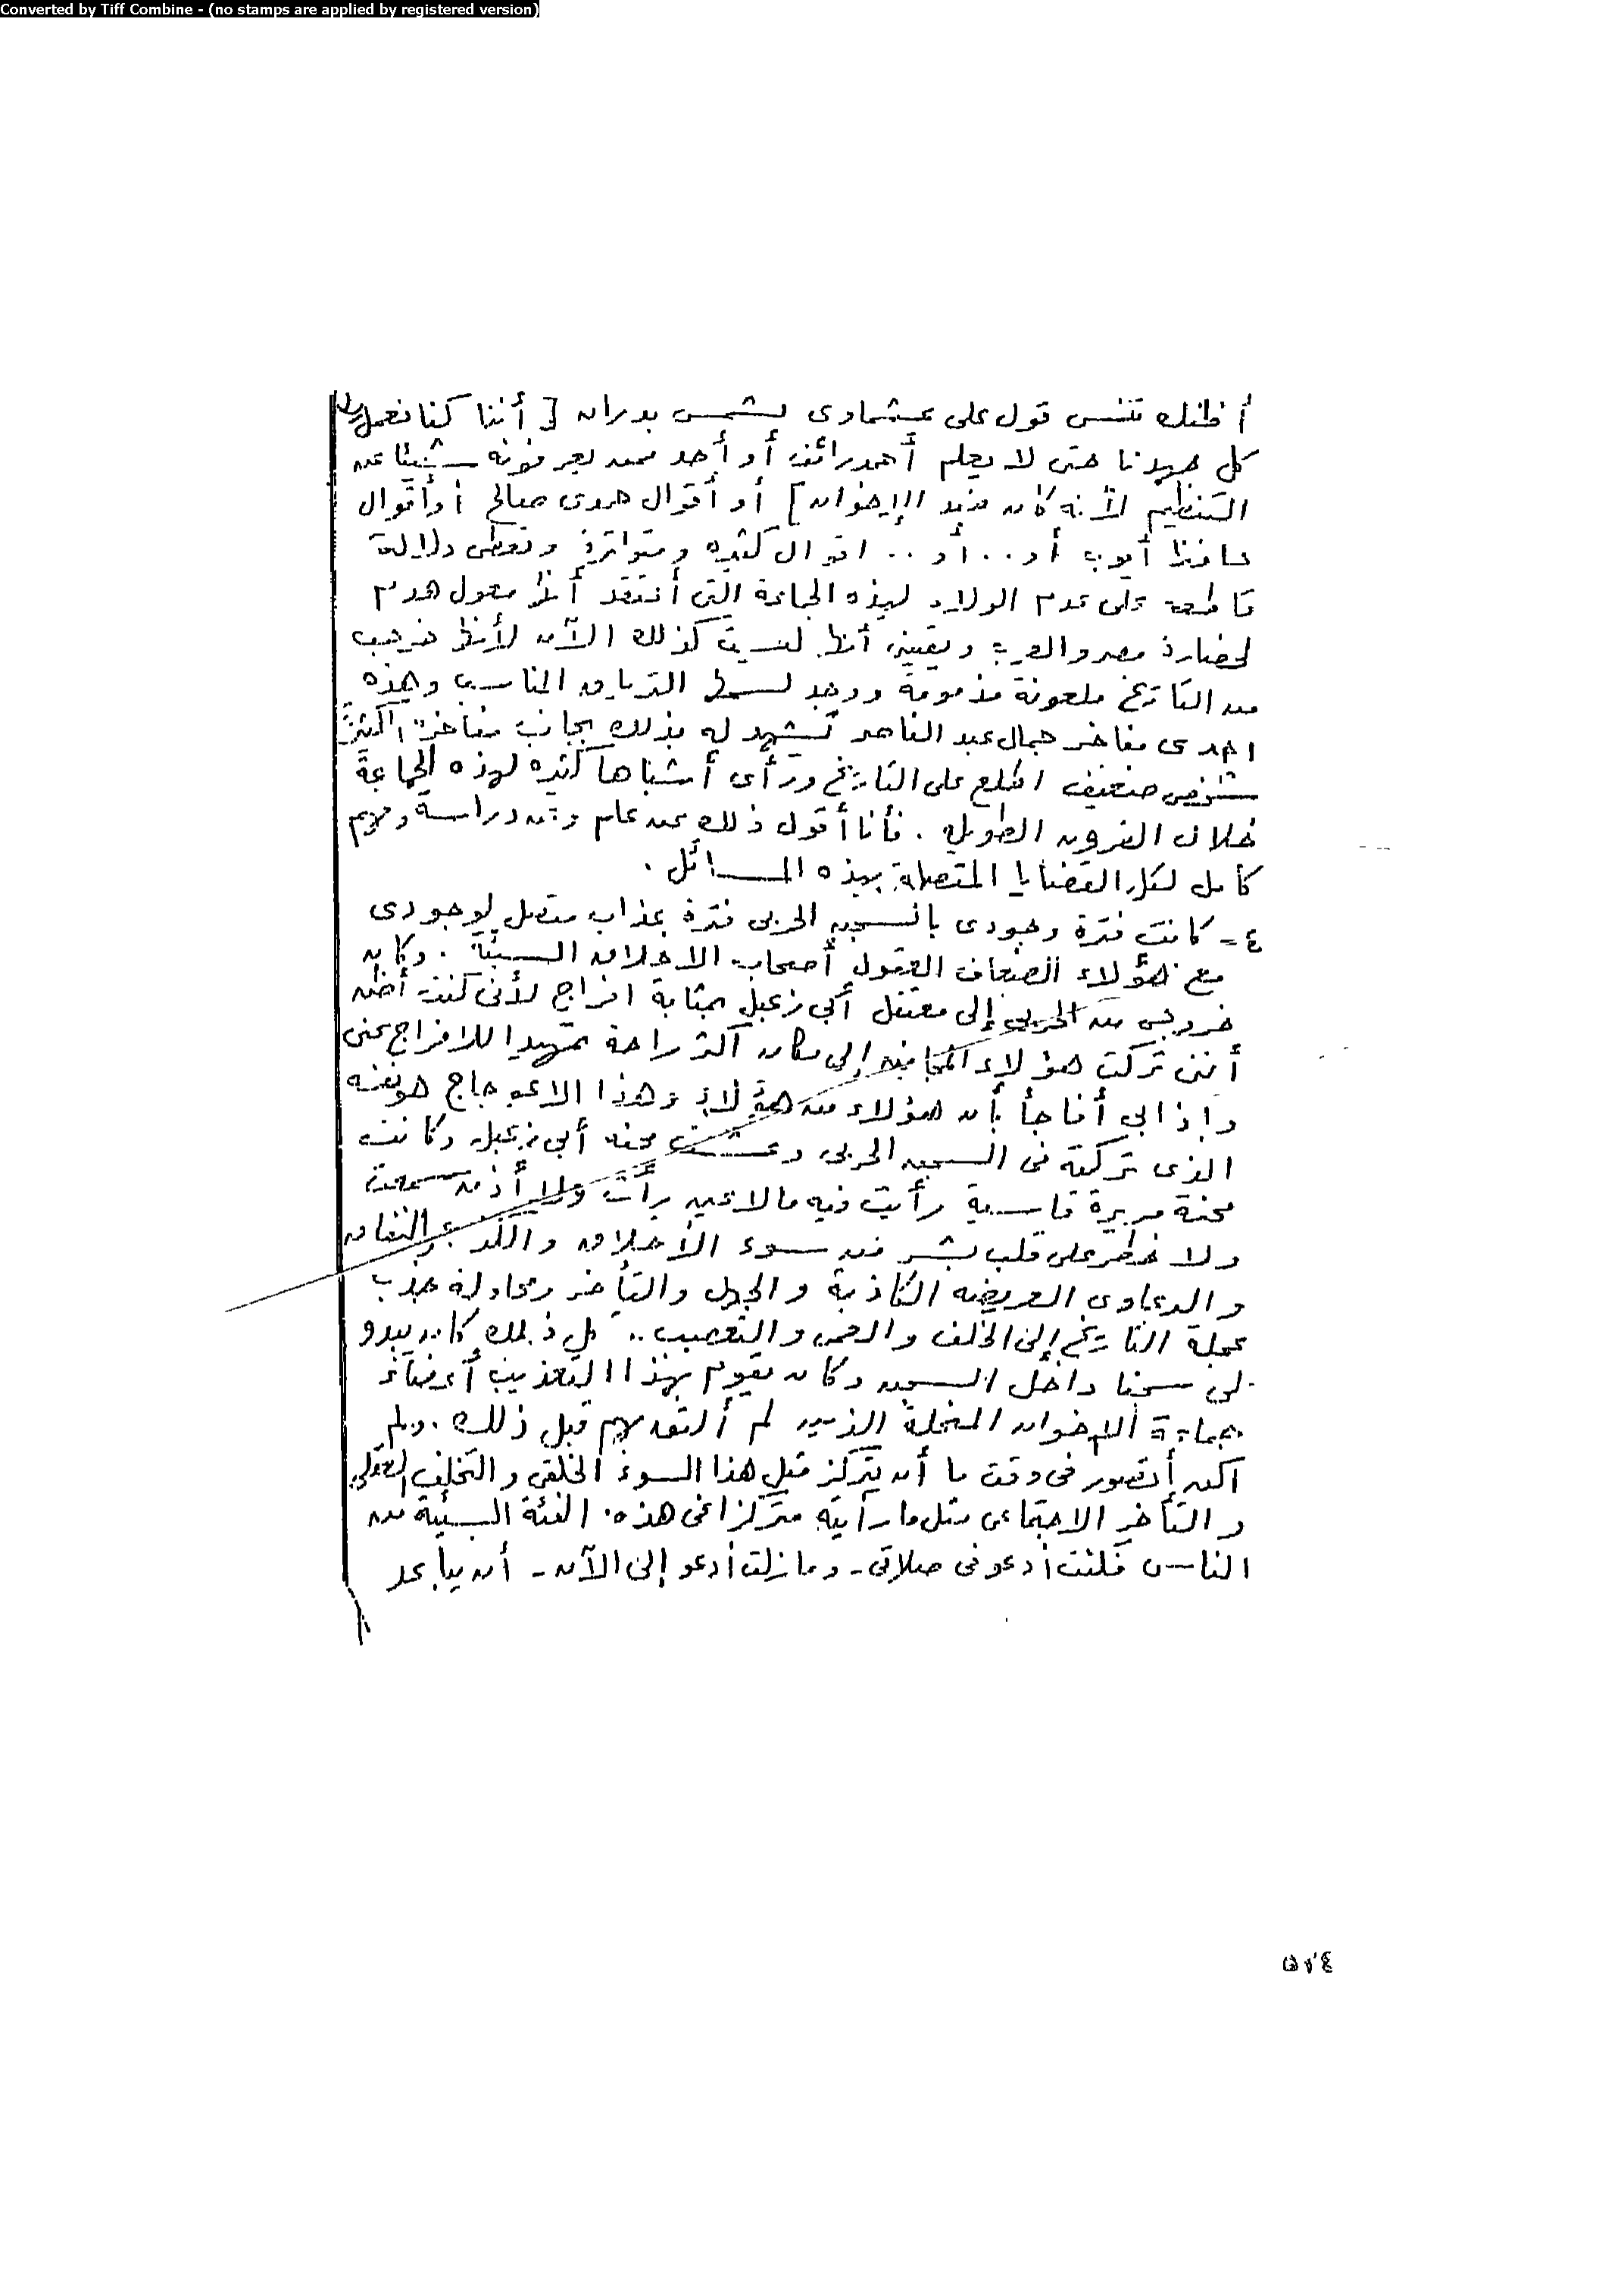 Converted by Tiff Combine - (no stamps are applied by registered version)
أظنك تنسى قول على عشماوى لشمس بدران [ أننا كنا نعمل
كل جهدنا حتى لا يعلم أحمد رائف أو أحد ممن يعرفونه شيئا عن
التنظيم لأنه كان ضد الإخوان ] أو أقوال هدى صالح أو أقوال
حافظ أيوب أو .. أو .. اقوال كثيره ومتواترة وتعطى دلالة
قاطعة على عدم الولاء لهذه الجماعة التى أعتقد أنها معول هدم
لحضارة مصر والعرب ويقينى أنها ليست كذلك الآن لأنها ذهبت
من التاريخ ملعونة مذمومة ووجد لسمها الترياق المناسب وهذه
احدى مفاخر جمال عبد الناصر تشهد له بذلك بجانب مفاخره اكثرها
شخص ضعيف اطلع على التاريخ ورأى أشباها كثيره لهذه الجماعة
خلال القرون الطويله . فأنا أقول ذلك عن علم وعن دراسة وفهم
كامل لكل القضايا المتصلة بهذه المسائل .
٤ - كانت فترة وجودى بالسجن الحربى فترة عذاب متصل لوجودى
مع هؤلاء الضعاف العقول أصحاب الاخلاق السيئة . وكان
خروجى من الحربى إلى معتقل أبى زعبل بمثابة افراج لأنى كنت أظن
أننى تركت هؤلاء المجانين إلى مكان أكثر راحة تمهيدا للافراج عنى
واذا بى أفاجأ بأن هؤلاء من هؤلاء وهذا الاعوجاج هو نفسه
الذى تركته فى السجن الحربى وعشت محنة أبى زعبل وكانت
محنة مريرة قاسية رأيت فيه مالا عين رأت ولا أذن سمعت
ولا خطر على قلب بشر من سوء الأخلاق والكذب والنفاق
والدعاوى العريضه الكاذبة والجهل والتأخر ومحاولة جذب
عجلة التاريخ إلى الخلف والحمق والتعصب .. كل ذلك كان يبدو
لى سجنا داخل السجن وكان يقوم بهذا التعذيب أعضاء
جماعة الاخوان المنحلة الذين لم ألتق بهم قبل ذلك . ولم
اكن أتصور فى وقت ما أن يتركز مثل هذا السوء الخلقى والتخلف العقلى
والتأخر الاجتماعى مثل ما رأيته متركزا فى هذه الفئة السيئة من
الناس فكنت أدعو فى صلاتى - وما زلت أدعو إلى الآن - أن يباعد
٥٧٤